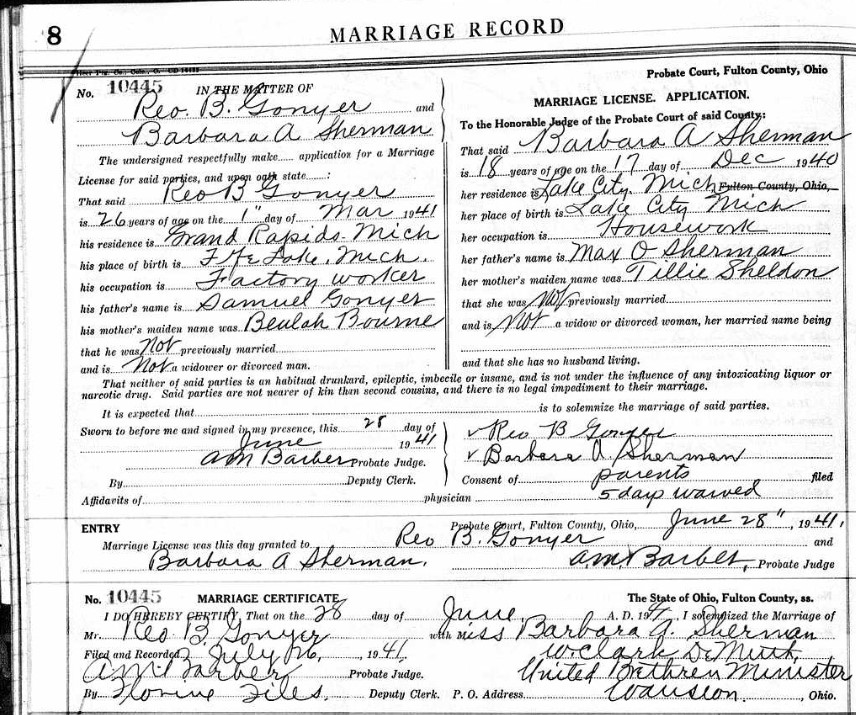 8
MARRIAGE RECORD
No. 10445 IN THE MATTER OF
Reo. B. Gonyer and
Barbara A Sherman
The undersigned respectfully make...... application for a Marriage
License for said parties, and upon oath state......:
That said Reo B Gonyer
is 26 years of age on the 1" day of Mar 1941
his residence is Grand Rapids. Mich
his place of birth is Lake, Mich.
his occupation is Factory worker
his father's name is Samuel Gonyer
his mother's maiden name was Beulah Bourne
that he was Not previously married
and is Not a widower or divorced man.
Probate Court, Fulton County, Ohio
MARRIAGE LICENSE. APPLICATION.
To the Honorable Judge of the Probate Court of said County:
That said Barbara A Sherman
is 18 years of age on the 17 day of Dec 1940
her residence is Lake City. Mich Fulton County, Ohio,
her place of birth is Lake City Mich
her occupation is Housework
her father's name is Max O Sherman
her mother's maiden name was Tillie Sheldon
that she was Not previously married
and is Not a widow or divorced woman, her married name being
and that she has no husband living.
That neither of said parties is an habitual drunkard, epileptic, imbecile or insane, and is not under the influence of any intoxicating liquor or
narcotic drug. Said parties are not nearer of kin than second cousins, and there is no legal impediment to their marriage.
It is expected that is to solemnize the marriage of said parties.
Sworn to before me and signed in my presence, this 28 day of
June 1941
AM Barber Probate Judge.
By Deputy Clerk.
Reo B Gonyer
Barbara A. Sherman
Consent of parents filed
Affidavits of physician 5 days waived
ENTRY Probate Court, Fulton County, Ohio, June 28", 1941,
Marriage License was this day granted to Reo B. Gonyer and
Barbara A Sherman. A.M. Barber, Probate Judge
No. 10445 MARRIAGE CERTIFICATE The State of Ohio, Fulton County, ss.
I DO HEREBY CERTIFY, That on the 28 day of June, A. D. 1941, I solemnized the Marriage of
Mr. Reo B. Gonyer with Miss Barbara A. Sherman
Filed and Recorded July 26, 1941. W. Clark
AM Barber Probate Judge. United Bethren Minister
By Florine Files. Deputy Clerk. P. O. Address Wauseon, Ohio.